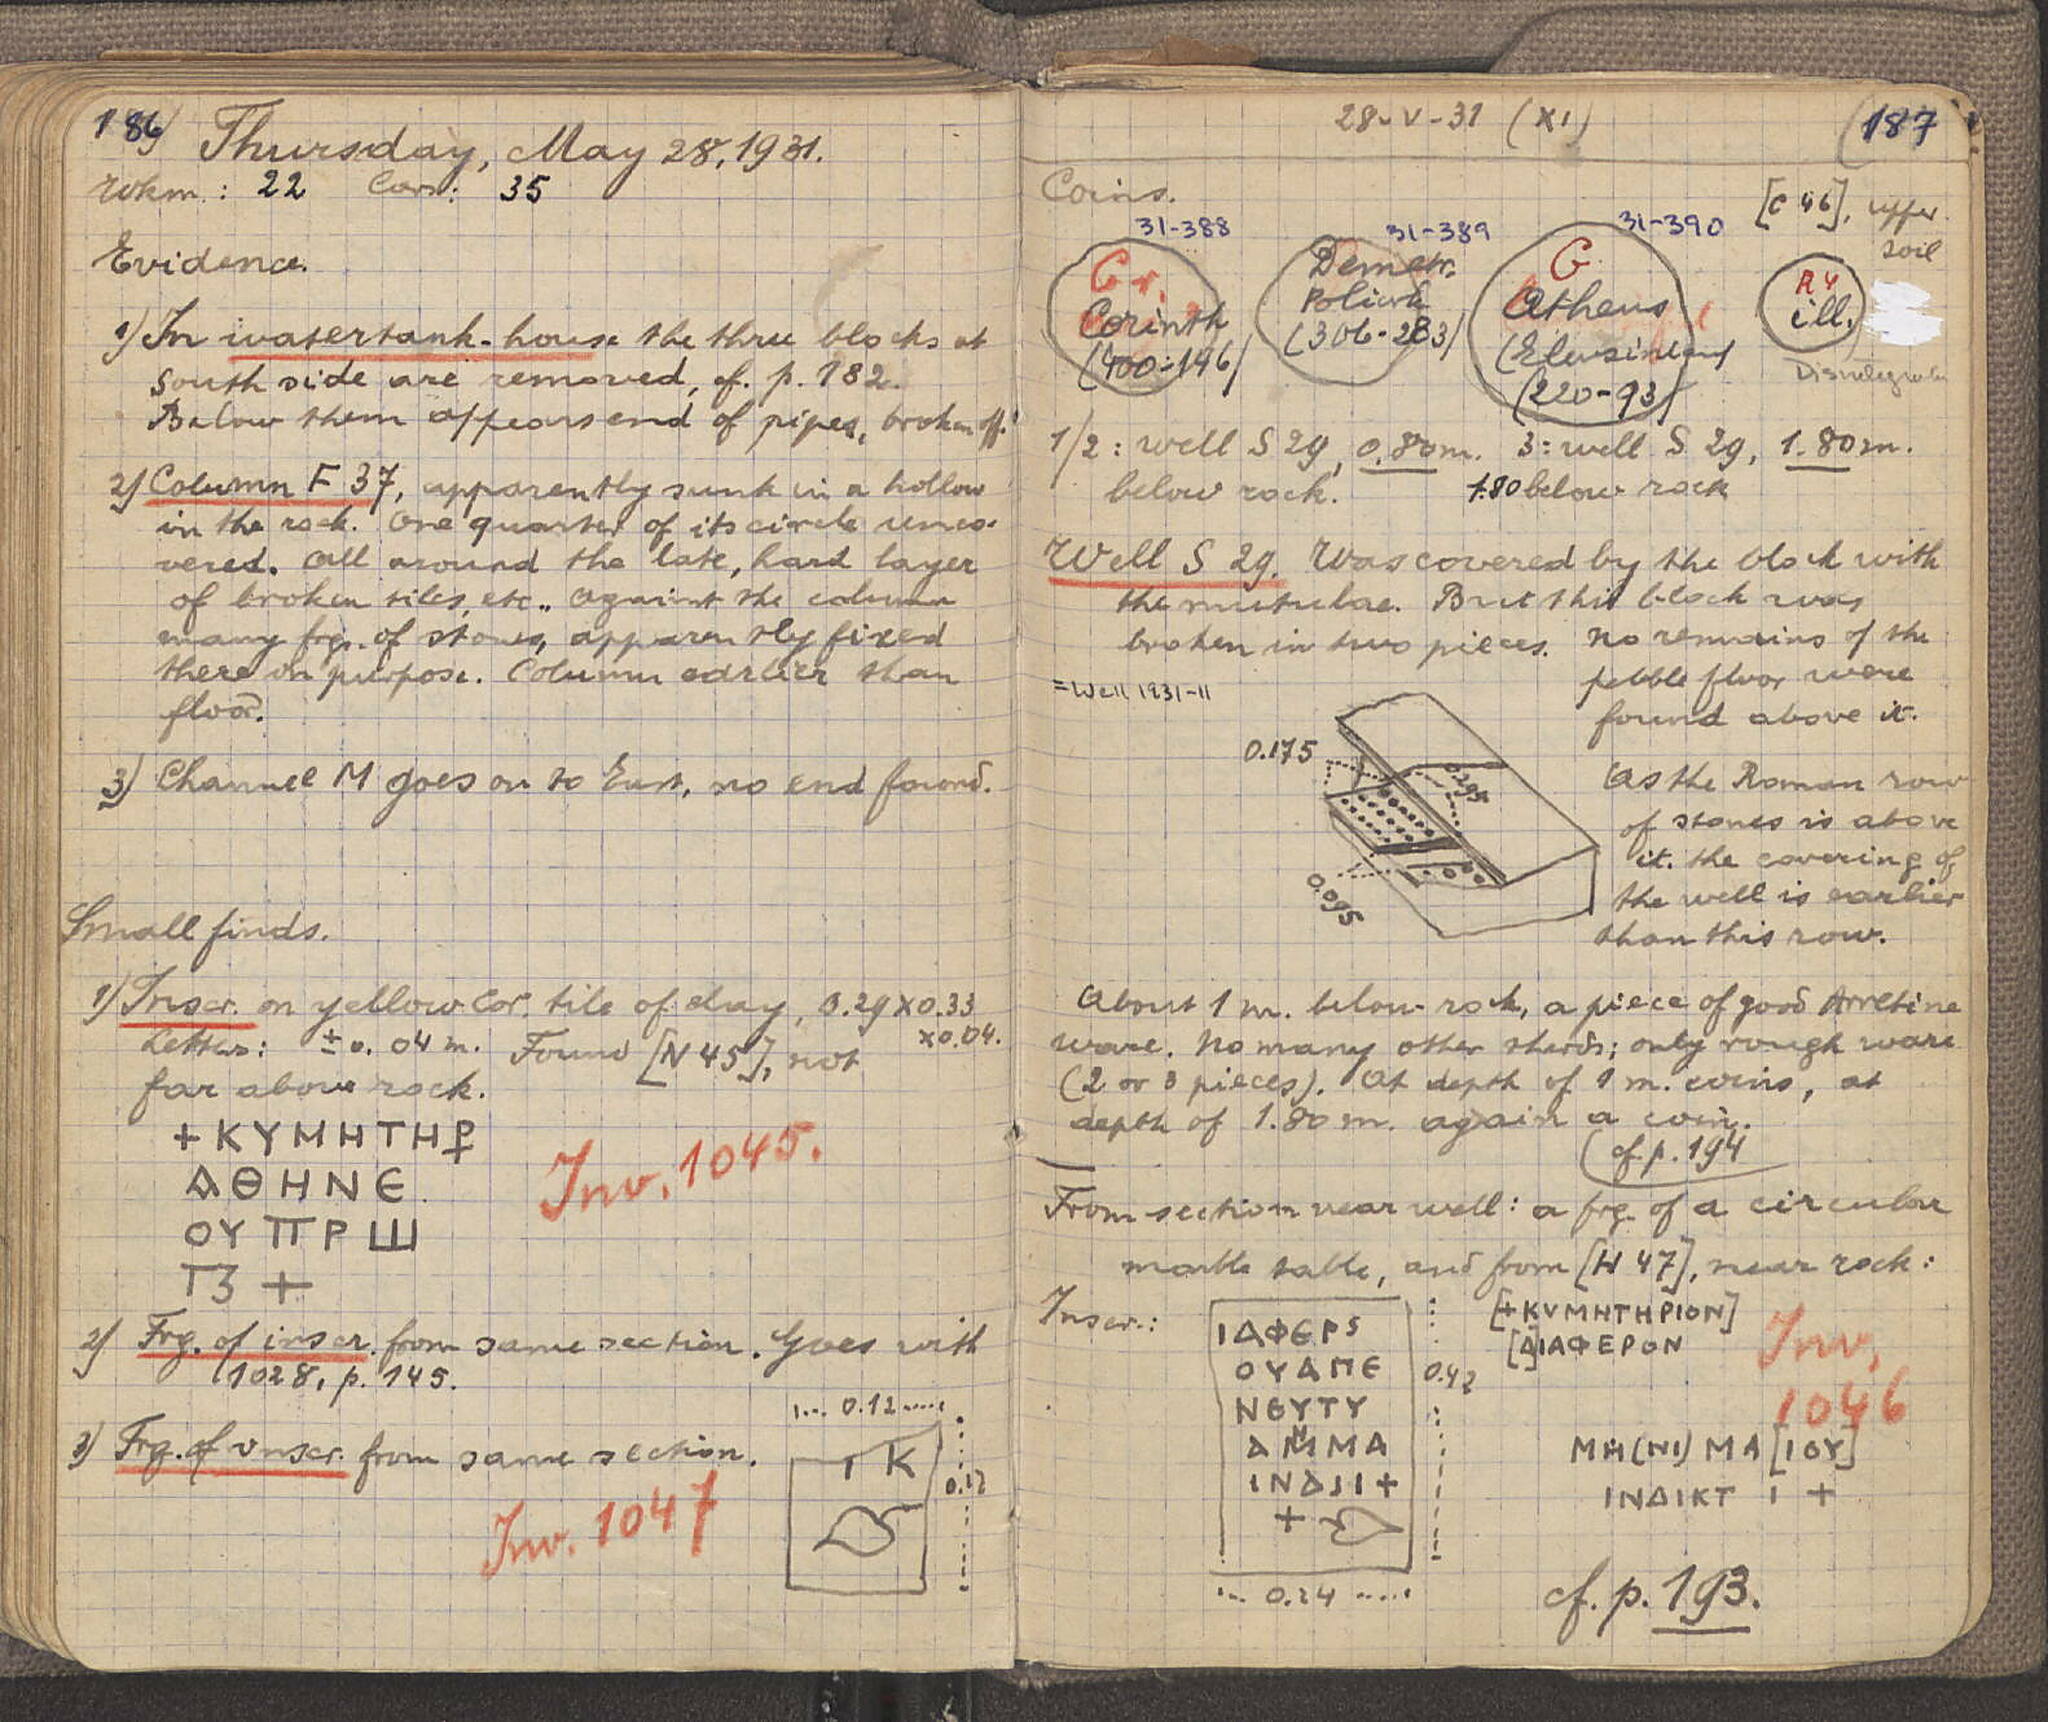 186)
Thursday, May 28, 1931.
Wkm.: 22 Cars: 35
Evidence.
1) In watertank-house the three blocks at
South side are removed, cf. p. 182.
Below them appears end of pipes, broken off.
2) Column F 37, apparently sunk in a hollow
in the rock. One quarter of its circle unco-
vered. All around the late, hard layer
of broken tiles, etc.. Against the column
many frgs. of stones, apparently fixed
there on purpose. Column earlier than
floor.
3) Channel M goes on to East, no end found.
Small finds.
1) Inscr. on yellow Cor. tile of clay, 0.29 x 0.33
x 0.04.
Letters: ± 0.04 m. Found [N 45], not
far above rock.
+ ΚΥΜΗΤΗΡ
ΑΘΗΝΕ
ΟΥΠΡШ
ΤΖ +
Inv. 1045.
2) Frg. of inscr. from same section. Goes with
1028, p. 145.
3) Frg. of inscr. from same section.
Inv. 1047
0.12
Ι Κ
0.17
28-V-31 (XI)
(187
Coins.
[C 46], upper
soil
31-388
31-389
31-390
Gr.
Corinth
(400-146)
Demetr.
Poliork
(306-283)
G.
Athens
(Eleusinian)
(220-93)
R 4
ill.
1/2: well S 29, 0.80 m. 3: well S 29, 1.80 m.
below rock. 1.80 below rock
Well S 29. Was covered by the block with
the mutulae. But this block was
broken in two pieces. No remains of the
pebble floor were
found above it.
= Well 1931-11
0.175
0.295
0.095
As the Roman row
of stones is above
it. the covering of
the well is earlier
than this row.
About 1 m. below rock, a piece of good Arretine
ware. No many other sherds; only rough ware
(2 or 3 pieces). At depth of 1 m. coins, at
depth of 1.80 m. again a coin.
(cf. p. 194
From section near well: a frg. of a circular
marble table, and from [H 47], near rock:
Inscr.:
ΙΔΦΕΡS
ΟΥΔΠΕ
ΝΘΥΤΥ
ΔΜΗΜΑ
ΙΝΔΙΙ+
+
0.42
0.24
[+ΚVΜΗΤΗΡΙΟΝ]
[Δ]ΙΑΦΕΡΟΝ
Inv.
1046
ΜΗ(ΝΙ) ΜΑ[ΙΟΥ]
ΙΝΔΙΚΤ Ι +
cf. p. 193.